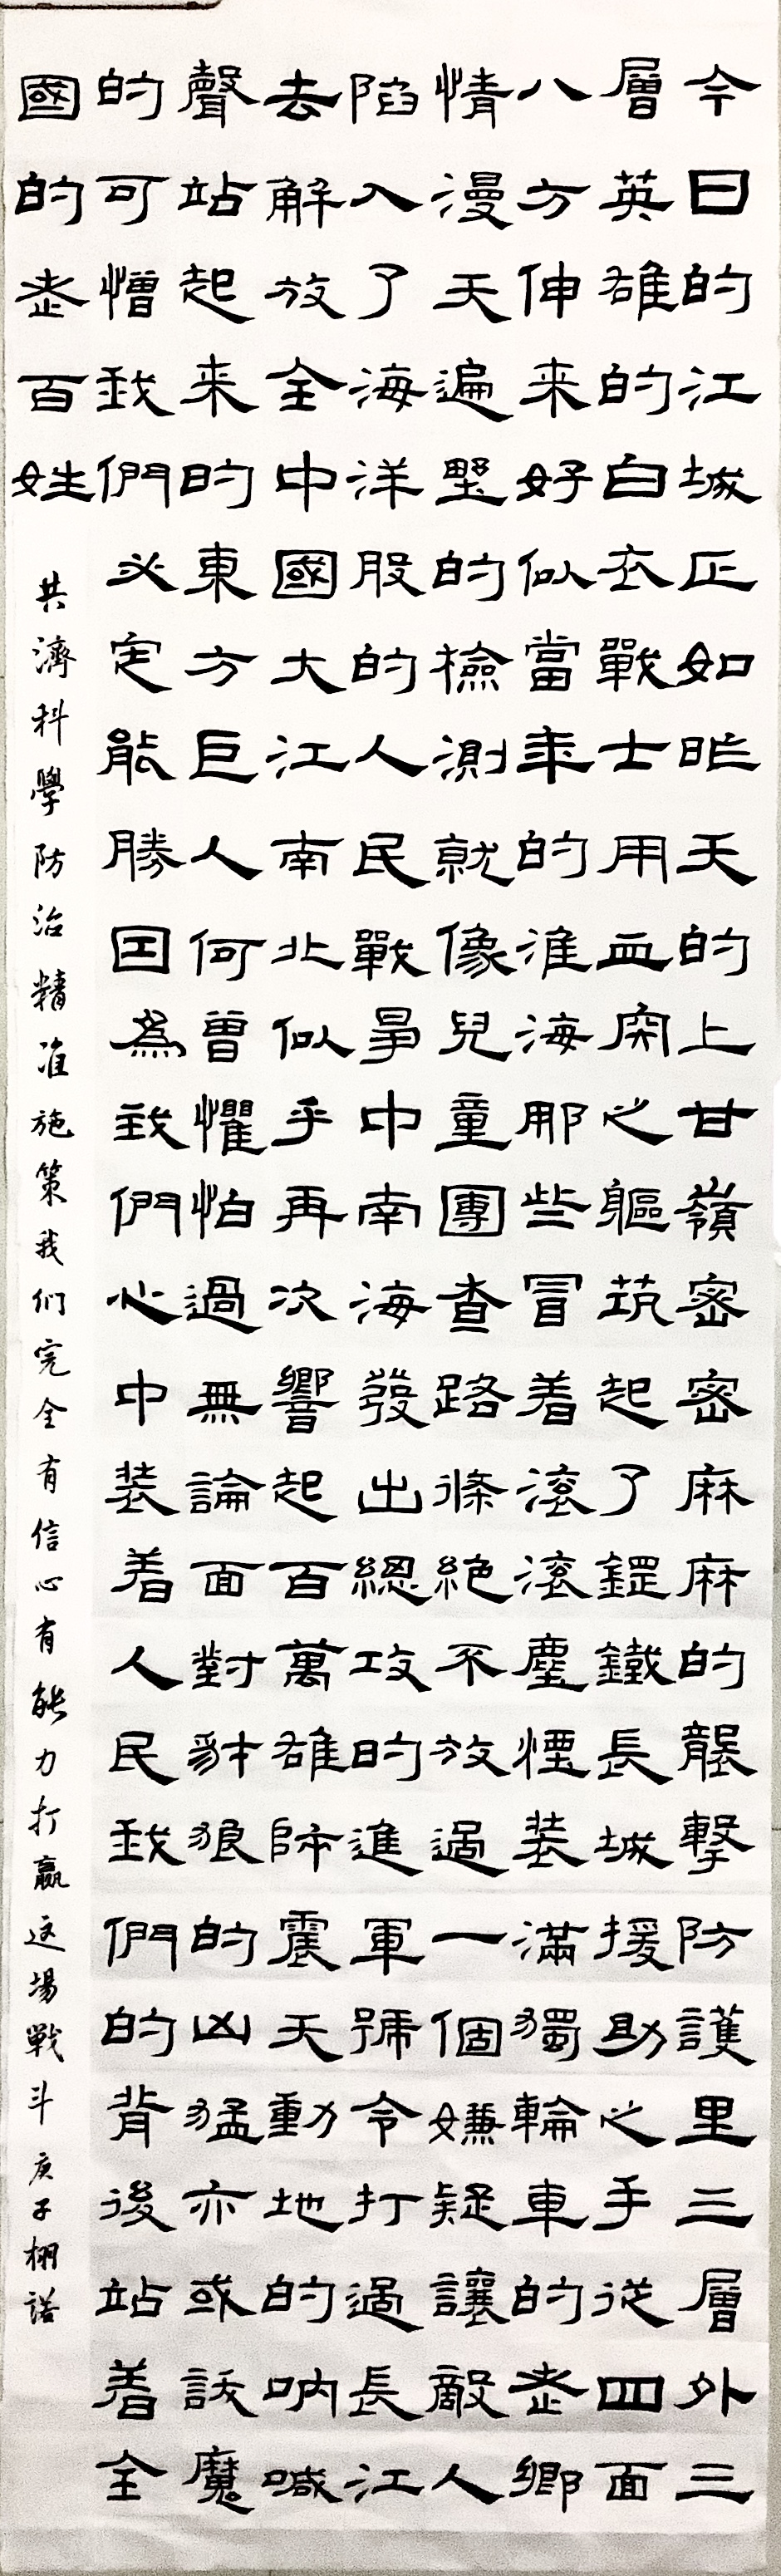 今日的江城正如昨天的上甘嶺密密麻麻的襲擊防護里三層外三
層英雄的白衣戰士用血肉之軀筑起了鋼鐵長城援助之手從四面
八方伸来好似當年的淮海那些冒着滾滾塵煙装滿獨輪車的老鄉
情漫天遍野的檢測就像兒童團查路條絕不放過一個嫌疑讓敵人
陷入了海洋般的人民戰爭中南海發出總攻的進軍號令打過長江
去解放全中國大江南北似乎再次響起百萬雄師震天動地的呐喊
聲站起来的東方巨人何曾懼怕過無論面對豺狼的凶猛亦或該魔
的可憎我們必定能勝因為我們心中装着人民我們的背後站着全
國的老百姓
共濟科學防治精准施策我们完全有信心有能力打贏这場戰斗庚子栩諾